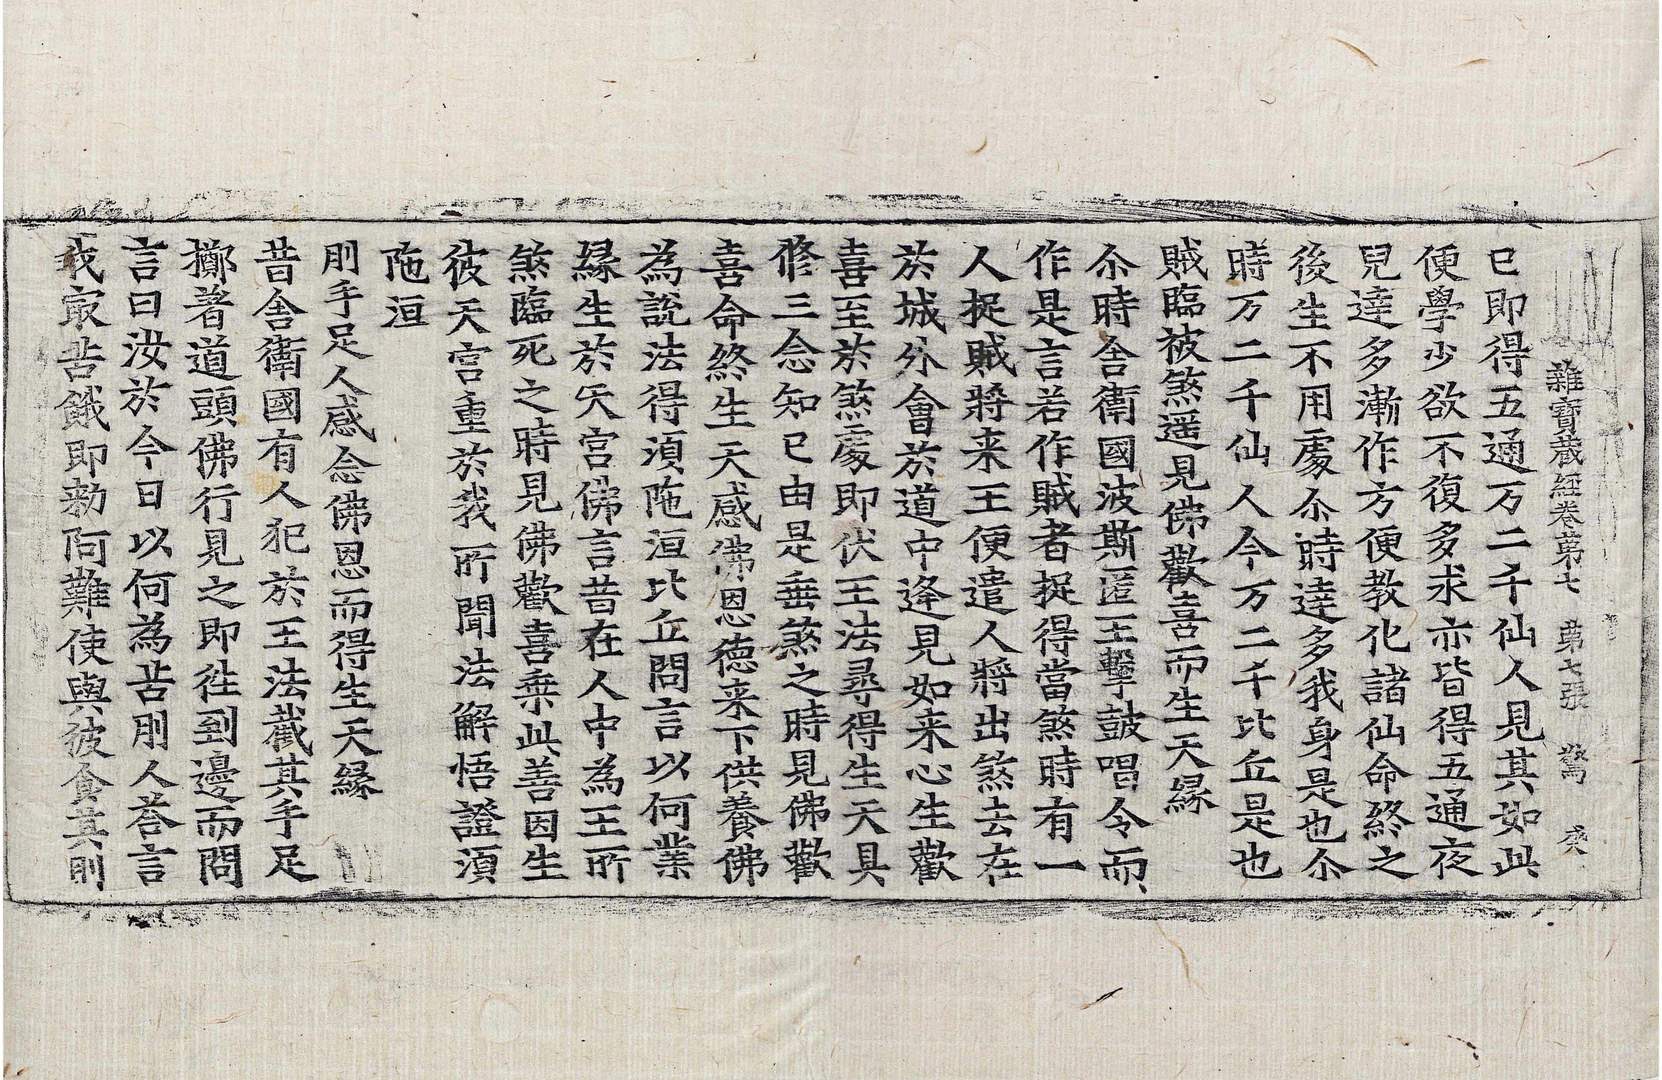 雜寶藏經卷第七　第七張　驚　癸
已即得五通万二千仙人見其如此
便學少欲不復多求亦皆得五通夜
兒達多漸作方便教化諸仙命終之
後生不用處尒時達多我身是也尒
時万二千仙人今万二千比丘是也
賊臨被煞遥見佛歡喜而生天緣
尒時舍衛國波斯匿王擊鼓唱令而
作是言若作賊者捉得當煞時有一
人捉賊將来王便遣人將出煞去在
於城外會於道中逢見如来心生歡
喜至於煞處即伏王法尋得生天具
修三念知已由是垂煞之時見佛歡
喜命終生天感佛恩德来下供養佛
為說法得湏陁洹比丘問言以何業
緣生於天宮佛言昔在人中為王所
煞臨死之時見佛歡喜乗此善因生
彼天宮重於我所聞法解悟證湏
陁洹
刖手足人感念佛恩而得生天緣
昔舍衛國有人犯於王法截其手足
擲著道頭佛行見之即往到邊而問
言曰汝於今日以何為苦刖人荅言
我㝡苦餓即勑阿難使與彼食其刖